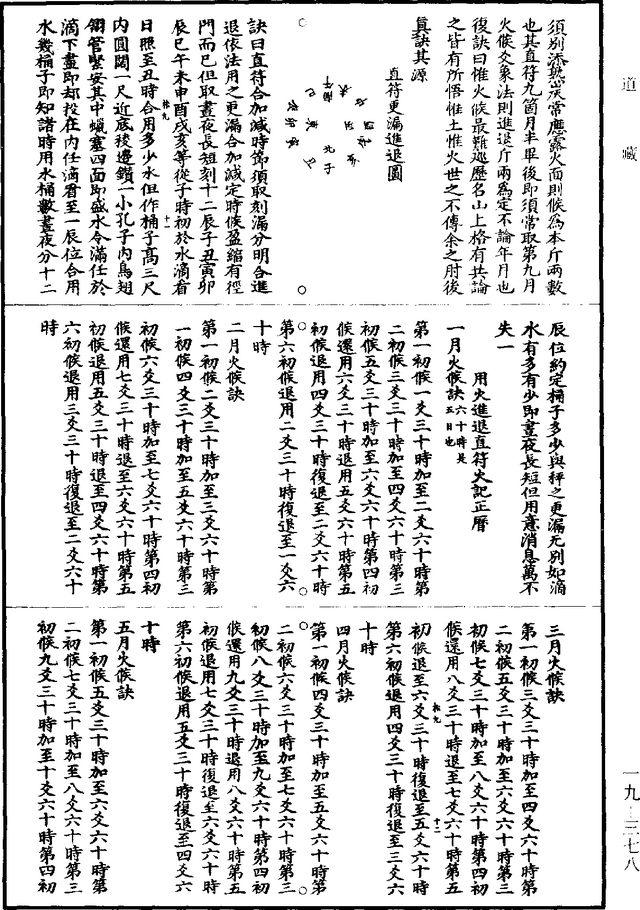 道藏
須別添熟炭常應露火面則候為本斤兩數
也其直符九箇月半畢後即須常取第九月
火候爻象法則進退斤兩為定不論年月也
復訣曰惟火候最難巡歷名山上格有共論
之皆有所悟惟土惟火世之不傳余之肘後
真訣其源
直符更漏進退圖
訣曰直符合加減時節須取刻漏分明合進
退依法用之更漏合加減定時候盈縮有徑
門而已但取晝夜長短刻十二辰子丑寅卯
辰巳午未申酉戌亥等從子時初於水滴看
日照至丑時合用多少水但作桶子高三尺
内圓闊一尺近底後邊鑽一小孔子内鳥翅
翎管緊安其中蠟塞四面即盛水令滿任於
滴下盡即却投在内任滴看至一辰位合用
水幾桶子即知諸時用水桶數晝夜分十二
辰位約定桶子多少與秤之更漏无別如滴
水有多有少即晝夜長短但用意消息萬不
失一
用火進退直符火記正曆
一月火候訣六十時是五日也
第一初候一爻三十時加至二爻六十時第
二初候三爻三十時加至四爻六十時第三
初候五爻三十時加至六爻六十時第四初
候還用六爻三十時退用五爻六十時第五
初候退用四爻三十時復退至二爻六十時
第六初候退用二爻三十時復退至一爻六
十時
二月火候訣
第一初候二爻三十時加至三爻六十時第
一初候四爻三十時加至五爻六十時第三
初候六爻三十時加至七爻六十時第四初
候還用七爻三十時退至六爻六十時第五
初候退用五爻三十時退至四爻六十時第
六初候退用三爻三十時復退至二爻六十
時
三月火候訣
第一初候三爻三十時加至四爻六十時第
二初候五爻三十時加至六爻六十時第三
初候七爻三十時加至八爻六十時第四初
候還用八爻三十時退至七爻六十時第五
初候退至六爻三十時復退至五爻六十時
第六初候退用四爻三十時復退至三爻六
十時
四月火候訣
第一初候四爻三十時加至五爻六十時第
二初候六爻三十時加至七爻六十時第三
初候八爻三十時加至九爻六十時第四初
候還用九爻三十時退用八爻六十時第五
初候退用七爻三十時復退至六爻六十時
第六初候退用五爻三十時復退至四爻六
十時
五月火候訣
第一初候五爻三十時加至六爻六十時第
二初候七爻三十時加至八爻六十時第三
初候九爻三十時加至十爻六十時第四初
一九-三七八